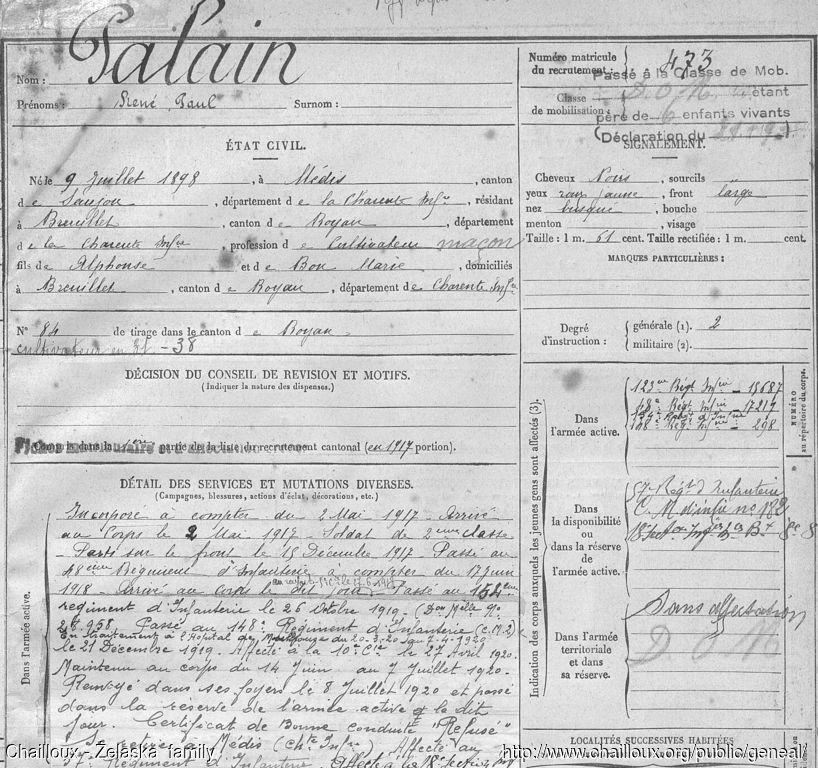 Nom : Palain
Prénoms : René Paul Surnom :
ÉTAT CIVIL.
Né le 9 Juillet 1898, à Médis, canton
de Saujon, département de la Charente Infre, résidant
à Breuillet, canton de Royan, département
de la Charente Infre, profession de Cultivateur maçon
fils de Alphonse et de Bon Marie, domiciliés
à Breuillet, canton de Royan, département de Charente Infre
N° 84 de tirage dans le canton de Royan
cultivateur en 37-38
DÉCISION DU CONSEIL DE REVISION ET MOTIFS.
(Indiquer la nature des dispenses.)
Compris dans la 1re partie de la liste du recrutement cantonal (en 1917 portion).
DÉTAIL DES SERVICES ET MUTATIONS DIVERSES.
(Campagnes, blessures, actions d'éclat, décorations, etc.)
Dans l'armée active.
Incorporé à compter du 2 Mai 1917 - Arrivé
au Corps le 2 Mai 1917 - Soldat de 2ème classe
Parti sur le front le 18 Décembre 1917 - Passé au
48ème Régiment d'Infanterie à compter du 17 Juin
1918 - Arrivé au corps le dit jour - Passé au 154ème
régiment d'Infanterie le 26 Octobre 1919 -
Passé au 148e Régiment d'Infanterie (C.M.2)
En traitement à l'Hopital de du 20-3-20 au 7-4-1920
le 21 Décembre 1919. Affecté à la 10e Cie le 27 Avril 1920.
Maintenu au corps du 14 Juin au 7 Juillet 1920.
Renvoyé dans ses foyers le 8 Juillet 1920 et passé
dans la réserve de l'armée active le dit
jour. Certificat de Bonne conduite "Refusé"
Se retire à Médis (Chte Infre) Affecté au
57e Régiment d'Infanterie
Numéro matricule du recrutement : 473
Classe de mobilisation :
Passé à la Classe de Mob.
étant
père de 6 enfants vivants
(Déclaration du
SIGNALEMENT.
Cheveux Noirs, sourcils
yeux jaune, front large
nez busqué, bouche
menton, visage
Taille : 1 m. 61 cent. Taille rectifiée : 1 m. cent.
MARQUES PARTICULIÈRES :
Degré d'instruction : générale (1). 2
militaire (2).
Indication des corps auxquels les jeunes gens sont affectés (3).
NUMÉRO au répertoire du corps.
Dans l'armée active.
123me Régt Infrie - 15687
48e Régt Infrie - 17219
148e Régt Infrie - 298
Dans la disponibilité ou dans la réserve de l'armée active.
57e Régt d'Infanterie
C.M d'infie no 182
Dans l'armée territoriale et dans sa réserve.
Sans affectation
LOCALITÉS SUCCESSIVES HABITÉES
Chailloux - Zelaska family
http://www.chailloux.org/public/geneal/